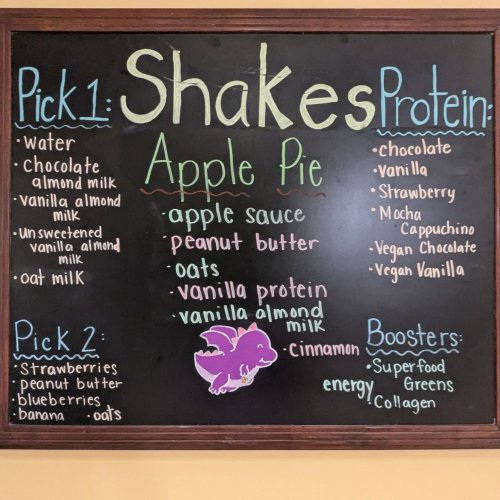 Shakes
Pick 1:
• water
• Chocolate
almond milk
• vanilla almond
milk
• unsweetened
vanilla almond
milk
• oat milk
Pick 2:
• Strawberries
• peanut butter
• blueberries
• banana • oats
Apple Pie
• apple sauce
• peanut butter
• oats
• vanilla protein
• vanilla almond
milk
• Cinnamon
Protein:
• chocolate
• vanilla
• Strawberry
• Mocha
Cappuchino
• Vegan Chocolate
• Vegan Vanilla
Boosters:
• Superfood
Greens
energy
• Collagen